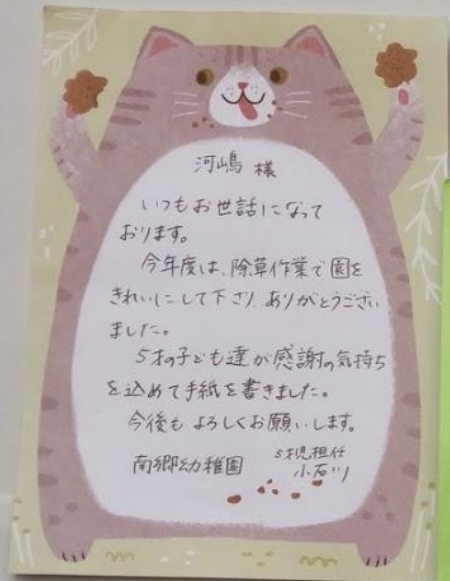 河嶋 様
いつもお世話になって
おります。
今年度は、除草作業で園を
きれいにして下さり、ありがとうござい
ました。
5才の子ども達が感謝の気持ち
を込めて手紙を書きました。
今後も よろしくお願いします。
南郷幼稚園 5才児担任
小石川